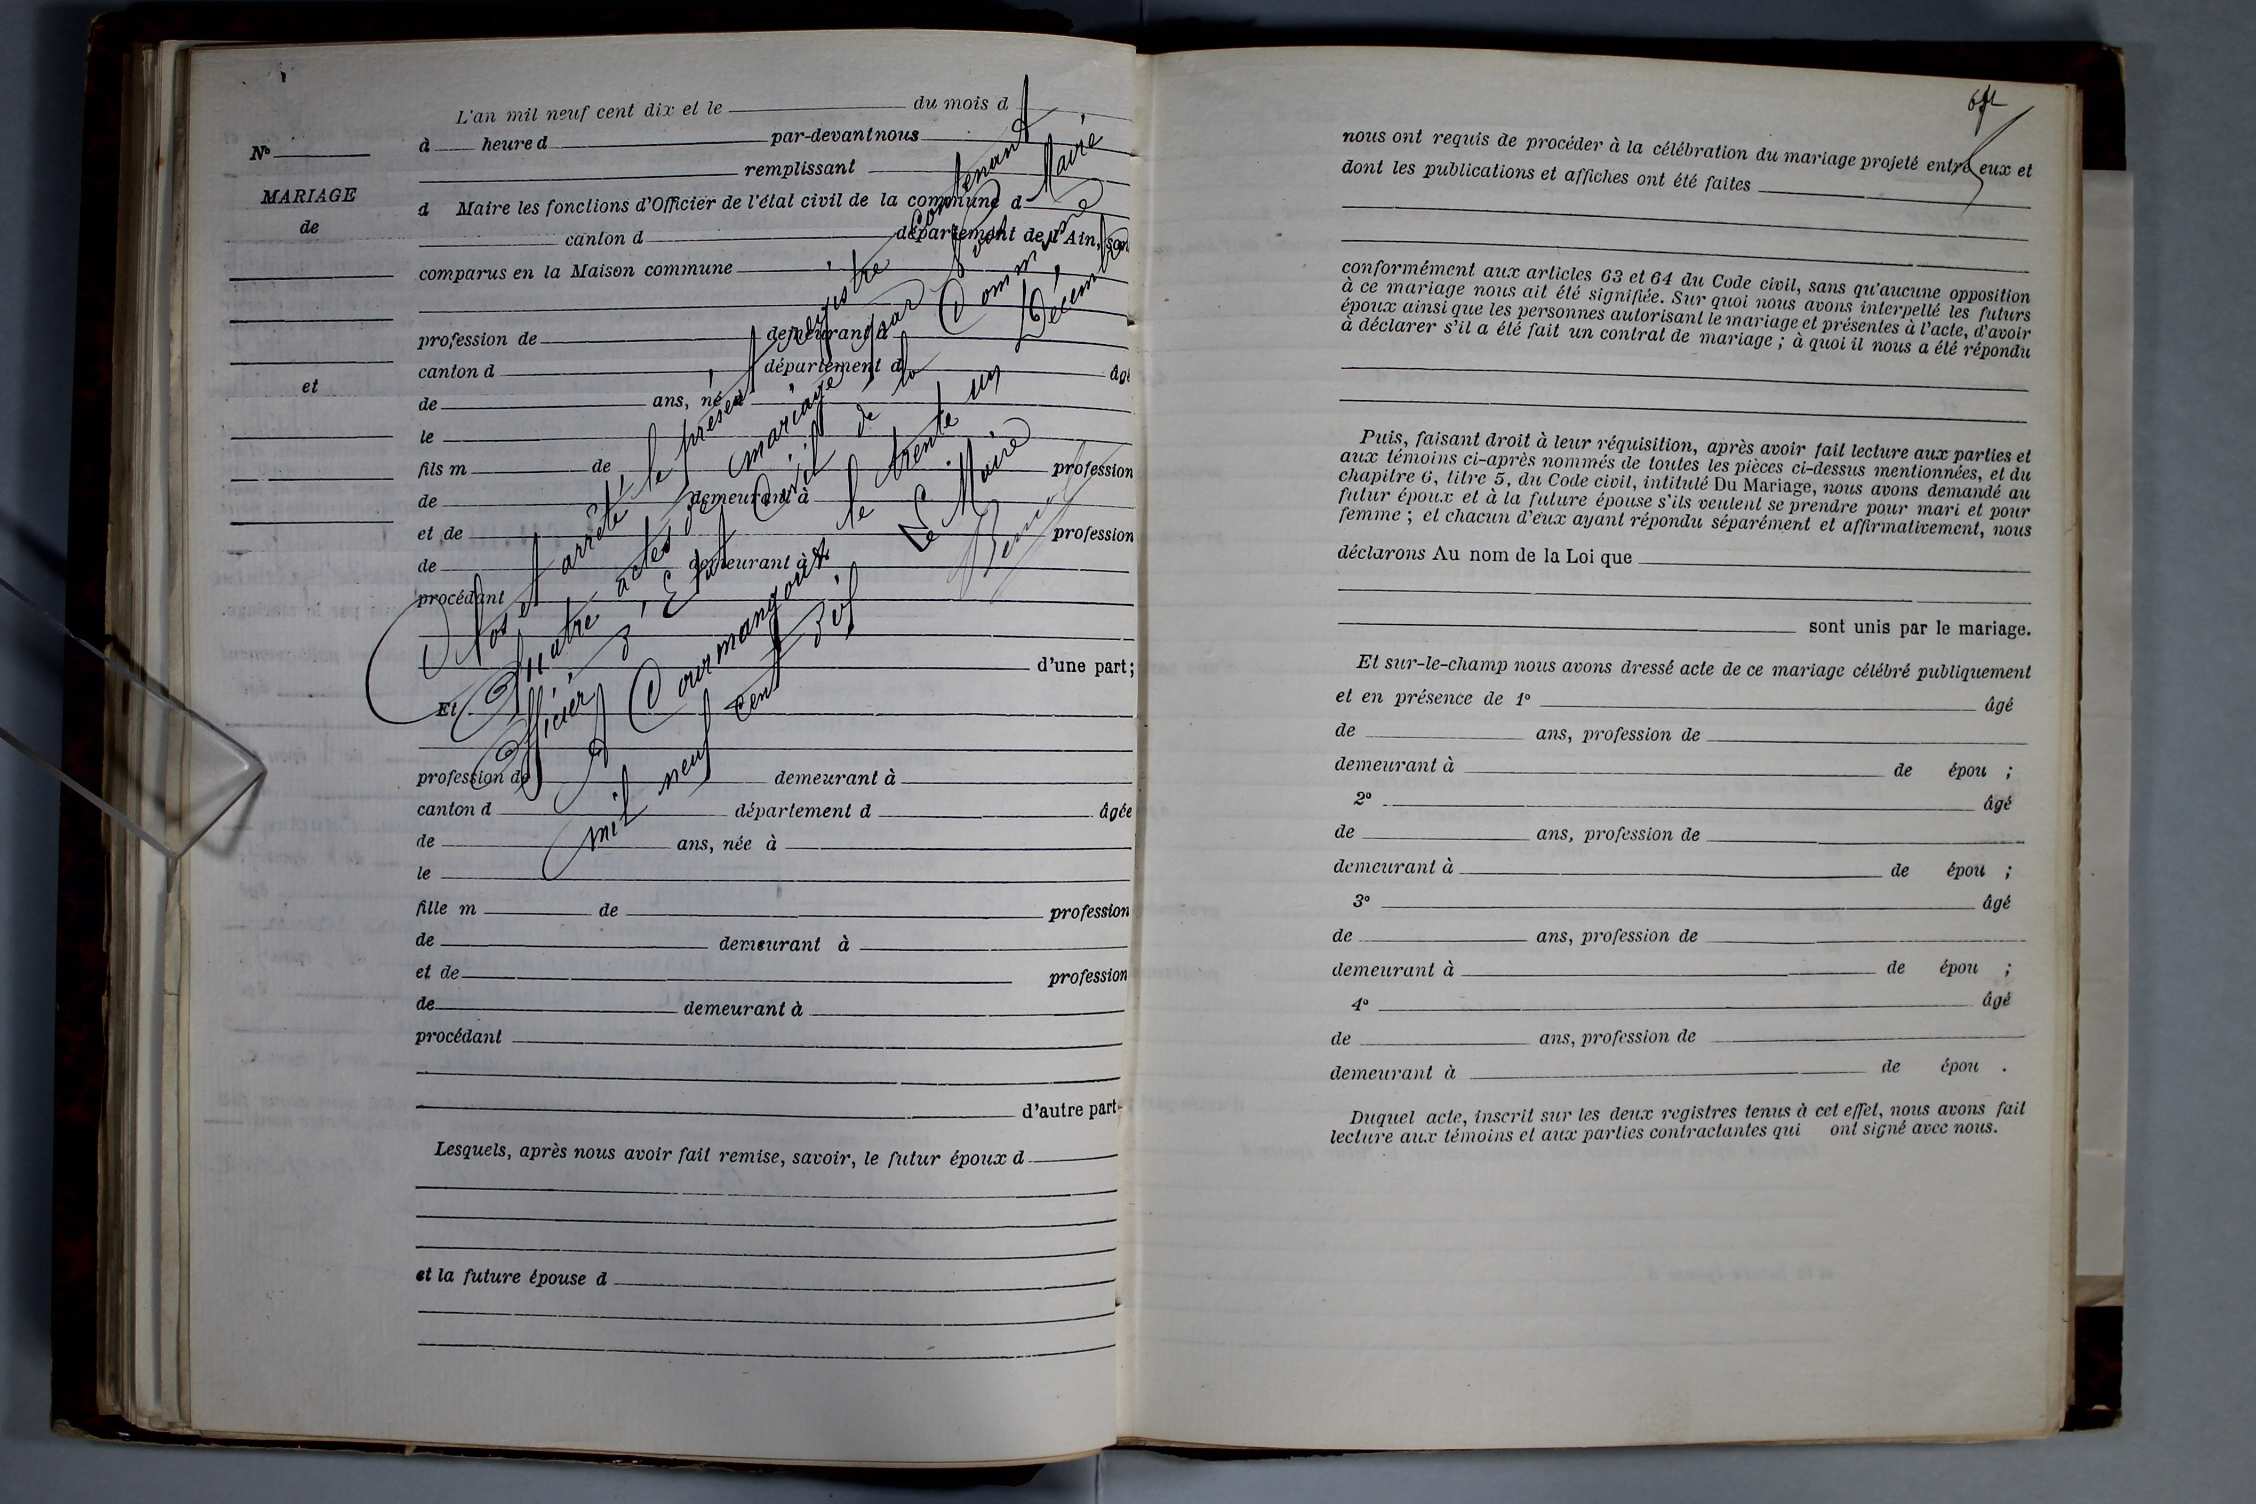 L'an mil neuf cent dix et le du mois d
N° à heure d par-devant nous
remplissant
MARIAGE
d Maire les fonctions d'Officier de l'état civil de la commune d
de
canton d département de l'Ain, son
comparus en la Maison commune
profession de demeurant à
canton d département d âgé
et
de ans, né à
le
fils m de profession
de demeurant à
et de profession
de demeurant à
procédant
d'une part;
Et
profession de demeurant à
canton d département d âgée
de ans, née à
le
fille m de profession
de demeurant à
et de profession
de demeurant à
procédant
d'autre part
Lesquels, après nous avoir fait remise, savoir, le futur époux d
et la future épouse d
Clos et arrêté le présent registre contenant
Quatre actes de mariage par Nous Maire
Officier d'Etat Civil de la Commune
A Courmangoux le trente un Décembre
mil neuf cent dix
Le Maire
nous ont requis de procéder à la célébration du mariage projeté entre eux et
dont les publications et affiches ont été faites
conformément aux articles 63 et 64 du Code civil, sans qu'aucune opposition
à ce mariage nous ait été signifiée. Sur quoi nous avons interpellé les futurs
époux ainsi que les personnes autorisant le mariage et présentes à l'acte, d'avoir
à déclarer s'il a été fait un contrat de mariage ; à quoi il nous a été répondu
Puis, faisant droit à leur réquisition, après avoir fait lecture aux parties et
aux témoins ci-après nommés de toutes les pièces ci-dessus mentionnées, et du
chapitre 6, titre 5, du Code civil, intitulé Du Mariage, nous avons demandé au
futur époux et à la future épouse s'ils veulent se prendre pour mari et pour
femme ; et chacun d'eux ayant répondu séparément et affirmativement, nous
déclarons Au nom de la Loi que
sont unis par le mariage.
Et sur-le-champ nous avons dressé acte de ce mariage célébré publiquement
et en présence de 1° âgé
de ans, profession de
demeurant à de épou ;
2° âgé
de ans, profession de
demeurant à de épou ;
3° âgé
de ans, profession de
demeurant à de épou ;
4° âgé
de ans, profession de
demeurant à de épou .
Duquel acte, inscrit sur les deux registres tenus à cet effet, nous avons fait
lecture aux témoins et aux parties contractantes qui ont signé avec nous.